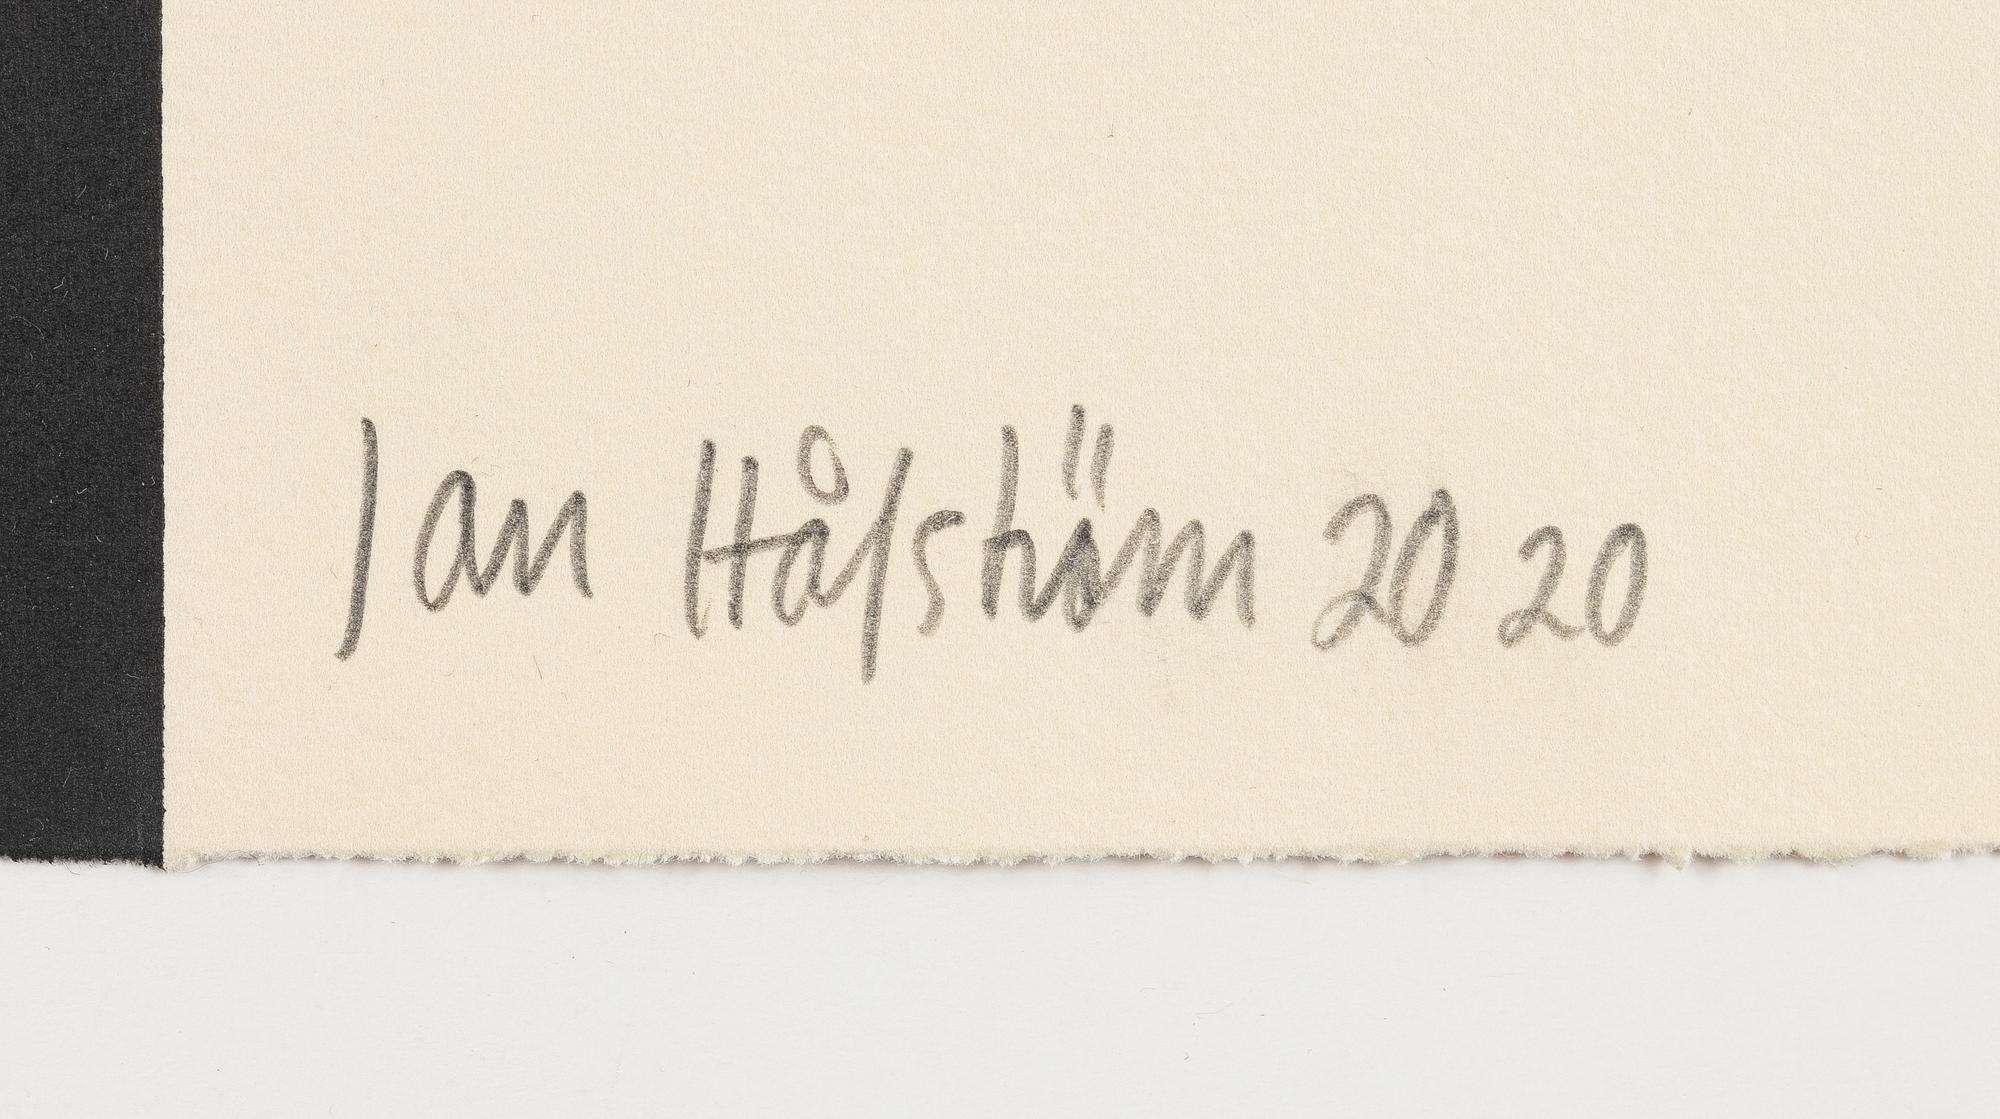 Jan Håfström 20 20